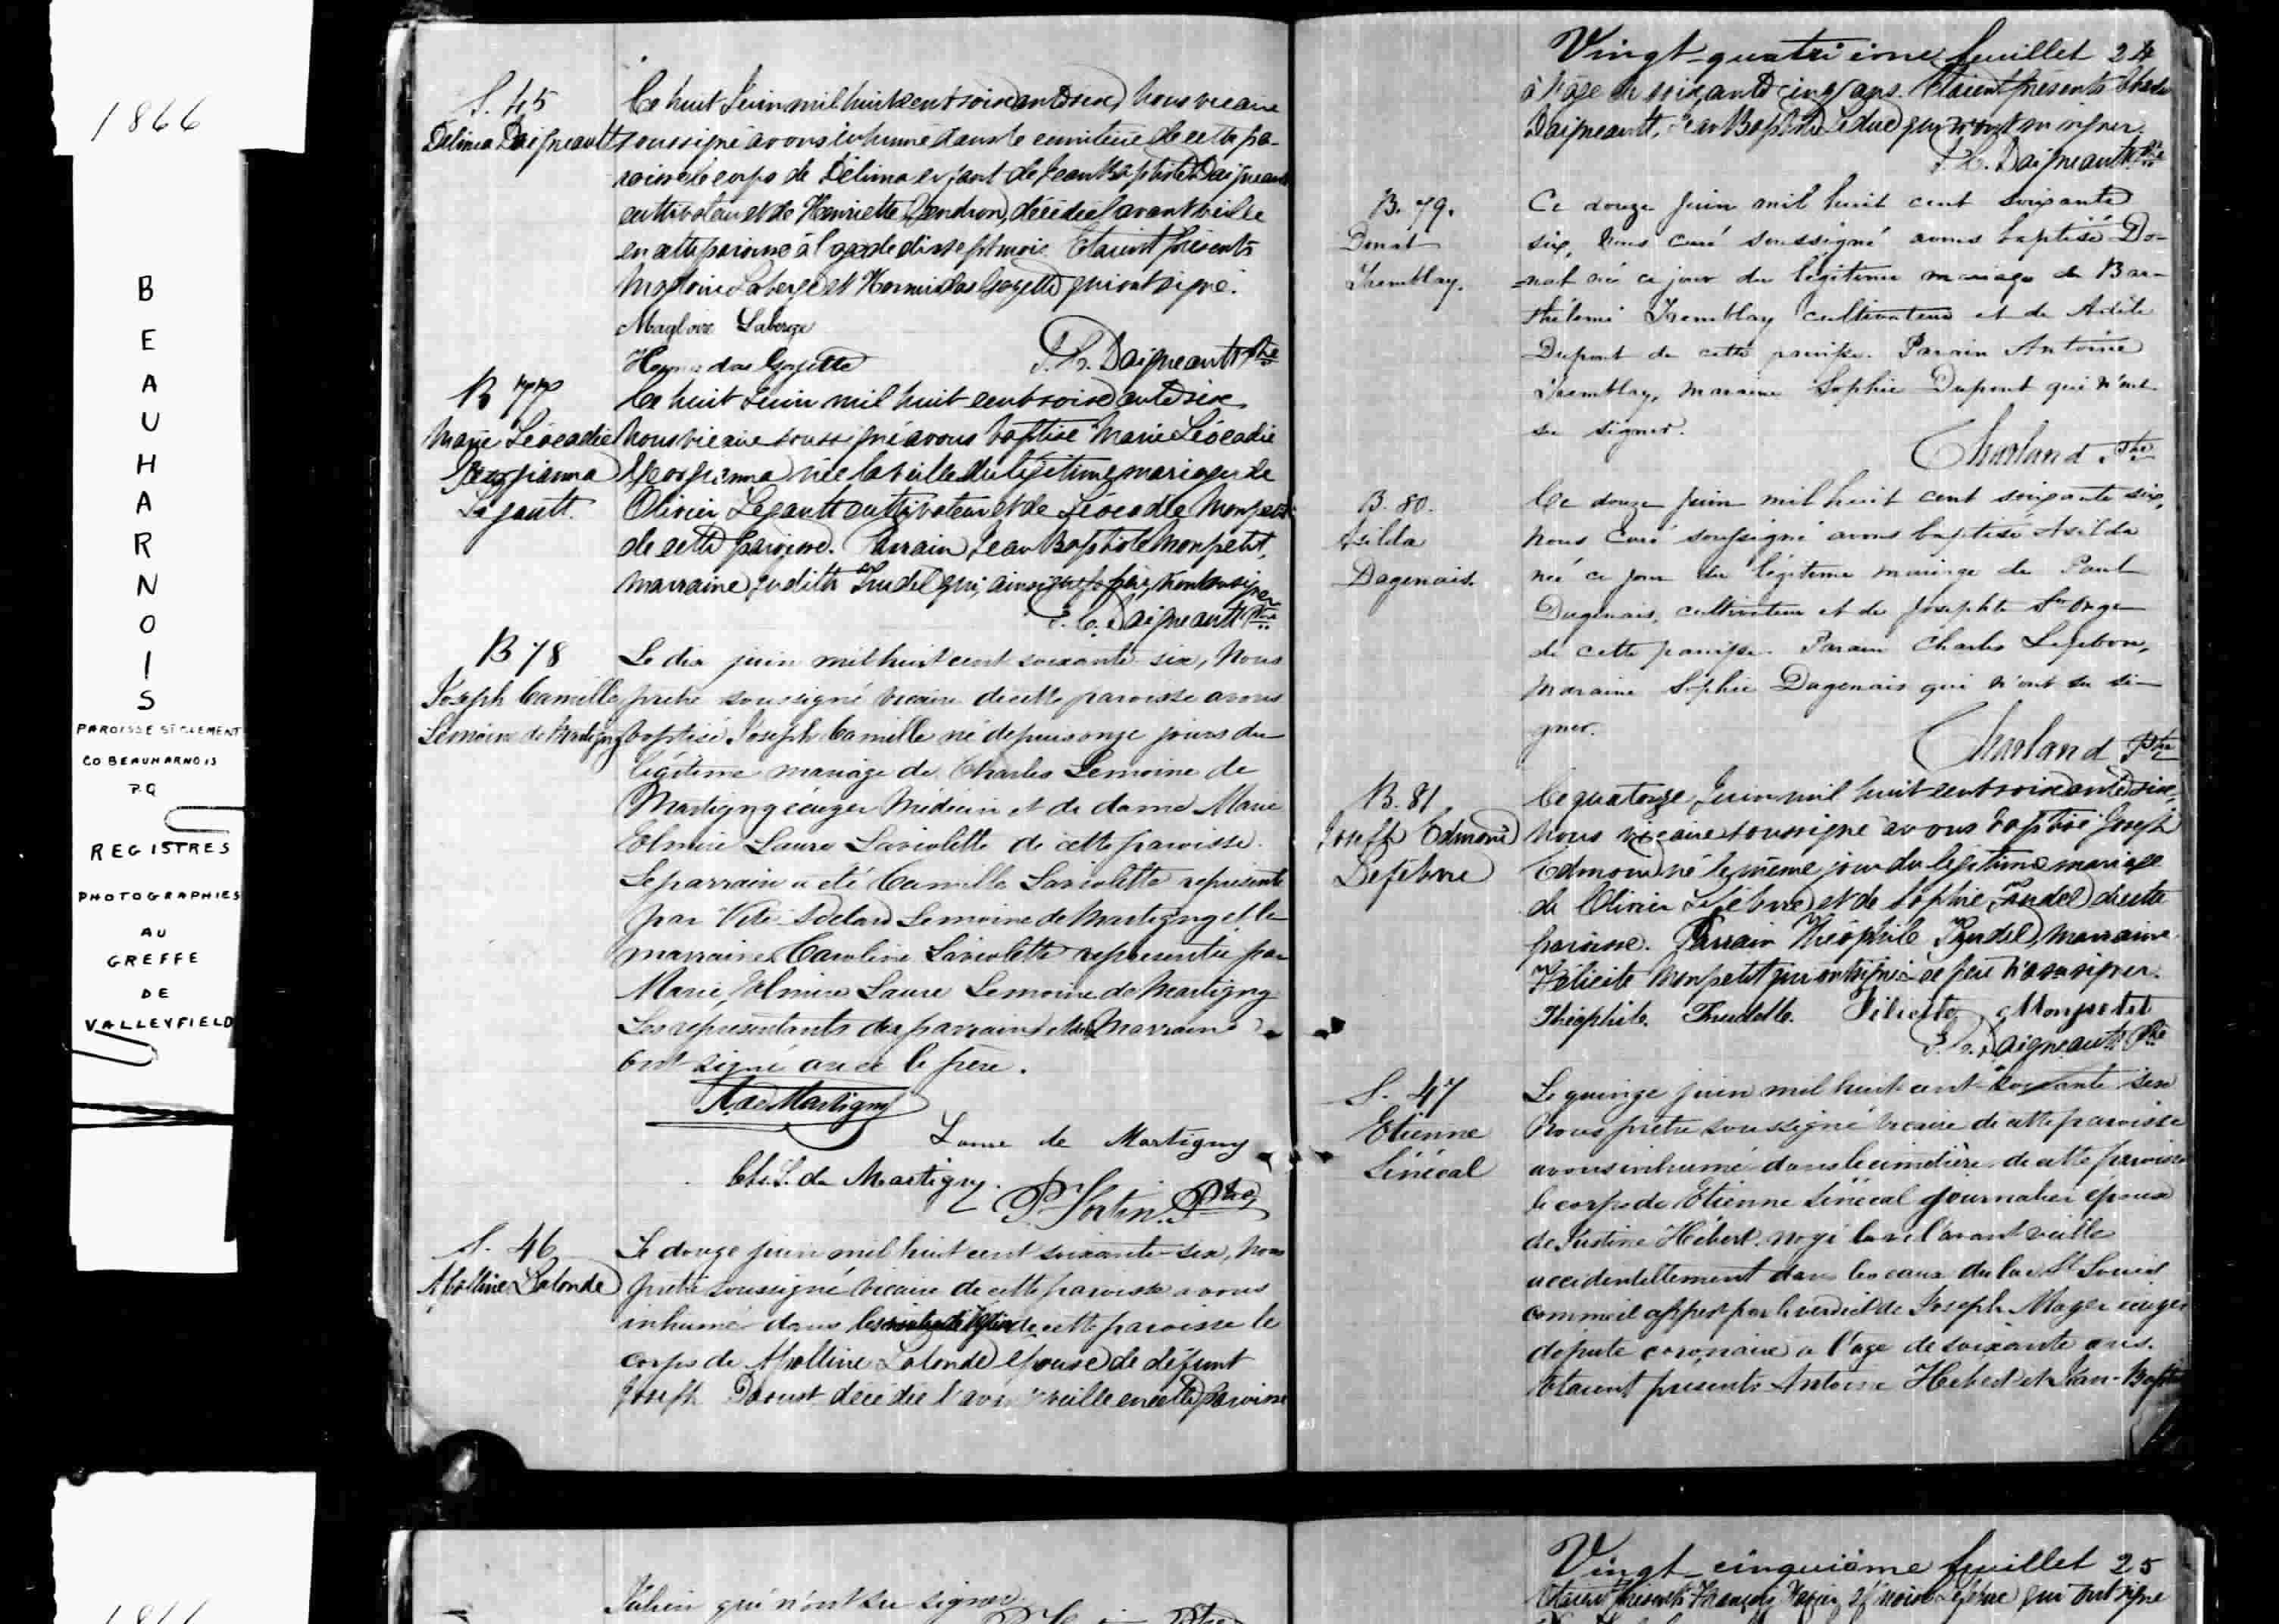 1866
B
E
A
U
H
A
R
N
O
I
S
PAROISSE ST CLEMENT
CO BEAUHARNOIS
P.Q
REGISTRES
PHOTOGRAPHIES
AU
GREFFE
DE
VALLEYFIELD
S. 45
Délima Daigneault
Ce huit Juin mil huit cent soixante six, Nous vicaire
soussigné avons inhumé dans le cimetière de cette pa-
roisse le corps de Délima enfant de Jean Baptiste Daigneault
cultivateur et de Henriette Gendron, décédée l'avant veille
en cette paroisse à l'age de dix sept mois. Etaient présents
Magloire Laberge et Hormisdas Goyette qui ont signé.
Magloire Laberge
Hormisdas Goyette
Daigneault Ptre
B 77
Marie Léocadie
Georgianna
Legault.
Ce huit Juin mil huit cent soixante six
Nous vicaire soussigné avons baptisé Marie Léocadie
Georgianna née la veille du légitime mariage de
Olivier Legault cultivateur et de Léocadie Monpetit
de cette paroisse. Parrain Jean Baptiste Monpetit,
marraine Judith Trudel qui, ainsi que le père, n'ont su signer
Daigneault Ptre
B 78
Joseph Camille
Lemoine de Martigny
Le dix juin mil huit cent soixante six, Nous
prêtre soussigné vicaire de cette paroisse avons
baptisé Joseph Camille né depuis onze jours du
légitime mariage de Charles Lemoine de
Martigny écuyer Médecin et de dame Marie
Elmire Laure Laviolette de cette paroisse.
Le parrain a été Camille Laviolette représenté
par Lemoine de Martigny et la
marraine Caroline Laviolette représentée par
Marie Elmire Laure Lemoine de Martigny
Les représentants des parrain et marraine
ont signé avec le père.
A. de Martigny
Laure de Martigny
Chs. L. de Martigny.
P. Fortin. Ptre
S. 46
Apolline Lalonde
Le douze juin mil huit cent soixante-six, nous
prêtre soussigné vicaire de cette paroisse avons
inhumé dans de cette paroisse le
corps de Apolline Lalonde épouse de défunt
Joseph Daoust décédée l'avant veille en cette paroisse
Vingt-quatrième feuillet 24
à l'âge de soixante cinq ans. Etaient présents
Daigneault, Jean Baptiste Leduc qui n'ont su signer.
Daigneault Ptre
B. 79.
Donat
Tremblay.
Ce douze Juin mil huit cent soixante
six, Nous curé soussigné avons baptisé Do-
nat né ce jour du légitime mariage de Bar-
thélemi Tremblay cultivateur et de Adèle
Dupont de cette paroisse. Parain Antoine
Tremblay, maraine Sophie Dupont qui n'ont
su signer.
Charland. Ptre
B. 80.
Asilda
Dagenais.
Ce douze Juin mil huit cent soixante six,
nous Curé soussigné avons baptisé Asilda
née ce jour du légitime mariage de Paul
Dagenais, cultivateur et de Josephte St Onge
de cette paroisse. Parain Charles Lefebvre,
maraine Sophie Dagenais qui n'ont su si-
gner.
Charland Ptre
B. 81
Joseph Edmond
Lefebvre
Ce quatorze Juin mil huit cent soixante six,
Nous vicaire soussigné avons baptisé Joseph
Edmond né le même jour du légitime mariage
de Olivier Lefebvre et de Sophie Trudel de cette
paroisse. Parrain Théophile Trudel, marraine
Félicité Monpetit qui ont signé. Le père n'a su signer.
Théophile. Trudelle. Félicité Monpetit
Daigneault Ptre
S. 47
Etienne
Sénécal
Le quinze juin mil huit cent soixante six
Nous prêtre soussigné vicaire de cette paroisse
avons inhumé dans le cimetière de cette paroisse
le corps de Etienne Sénécal journalier époux
de Justine Hébert. noyé l'avant veille
accidentellement dans les eaux du lac St Louis
comme il appert par le verdict de Joseph Mager écuyer
député coronaire à l'age de soixante ans.
Etaient présents Antoine Hébert et Jean-Baptiste
Julien qui n'ont su signer.
Vingt-cinquième feuillet 25
Etaient présents François Xavier Lefebvre qui ont signé